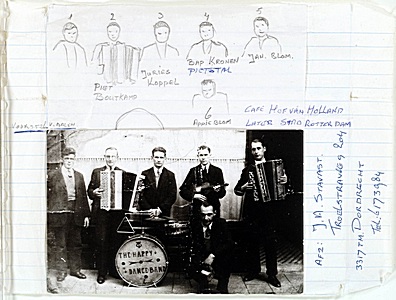 1 2 3 4 5
Piet
Boutkamp
Juries
Koppel
Bap Kronen
Pictotal
Jav. Blom.
6
Apple Blom
Café Hof van Holland
Later Stad Rotterdam
THE HAPPY
DANCE BAND
Afz: J.A. Stavast.
3317TM. Dordrecht
Tel: 6173984